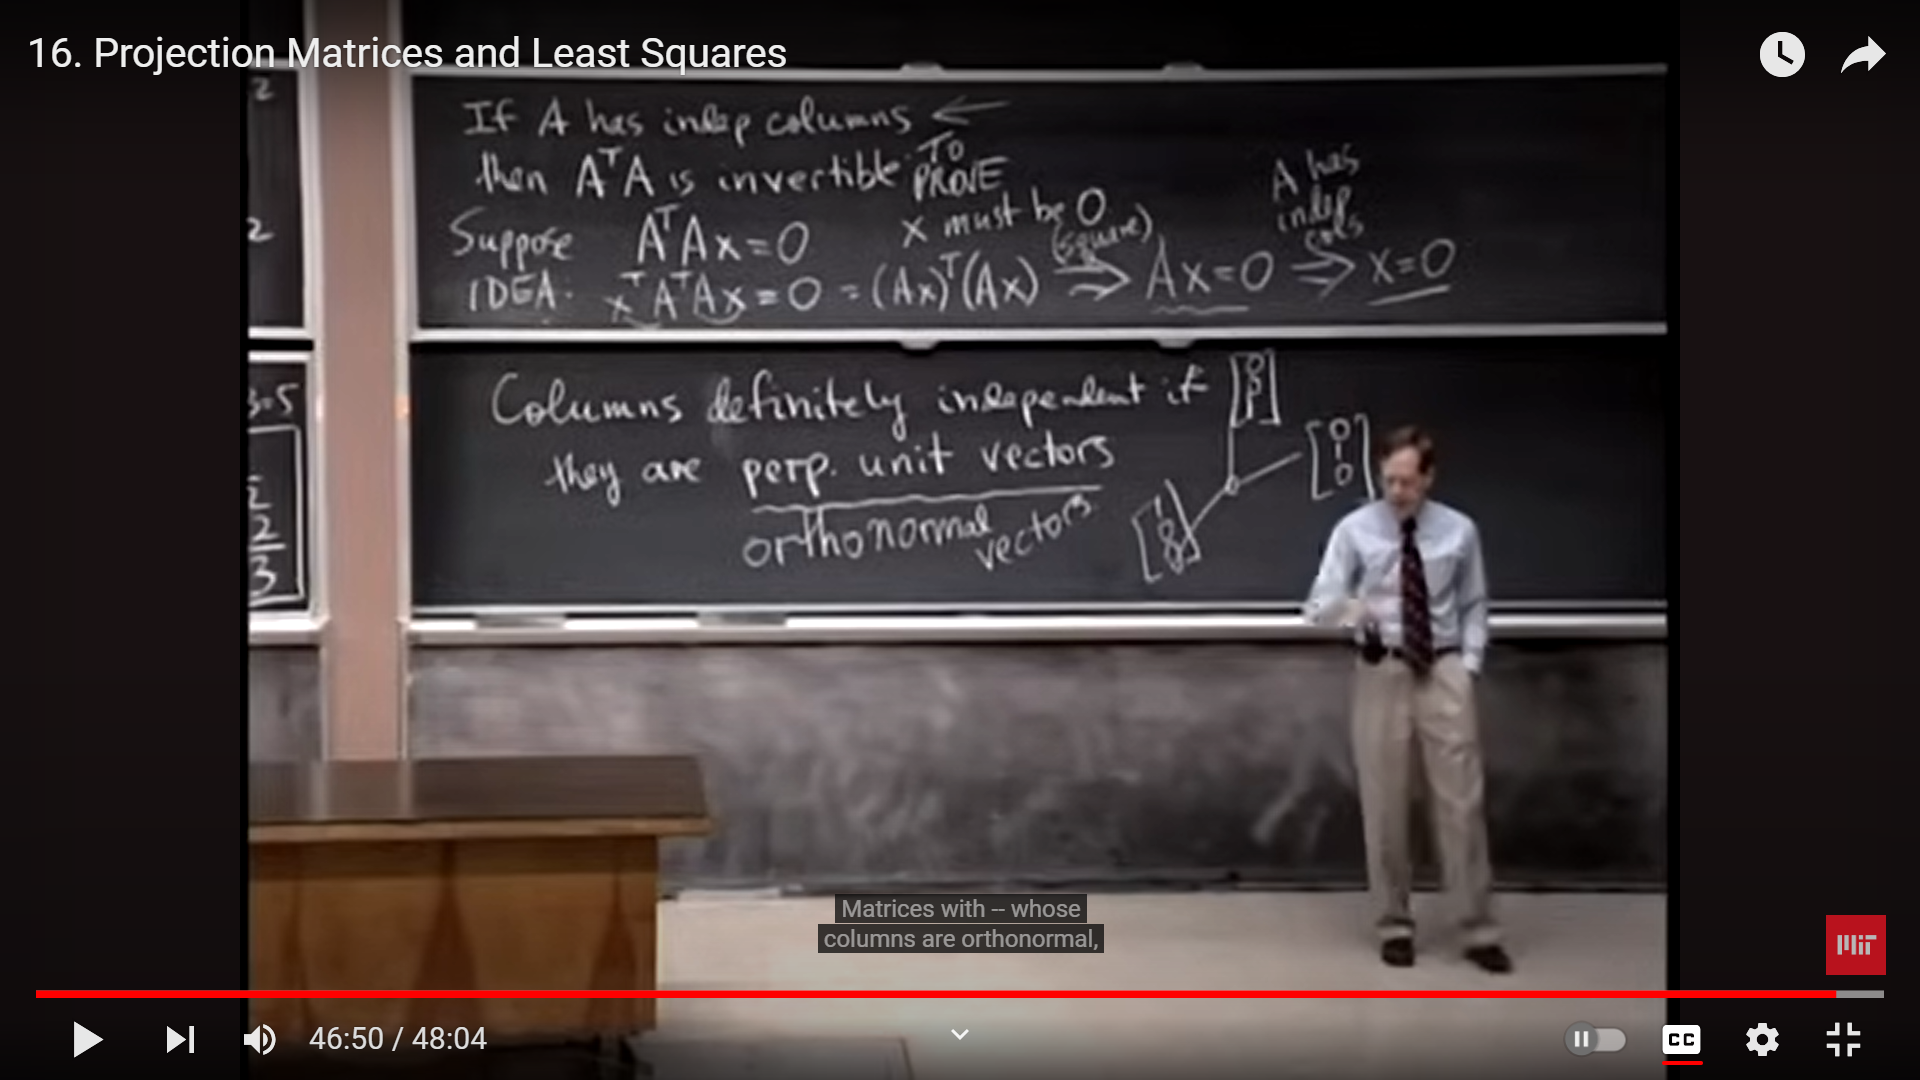 16. Projection Matrices and Least Squares
2
2
3.5
2
3
If A has indep columns ←
then AᵀA is invertible TO PROVE
Suppose AᵀAx=0 x must be 0
IDEA: xᵀAᵀAx=0 = (Ax)ᵀ(Ax) (square) ⇒ Ax=0 ⇒ x=0
A has
indep
cols
Columns definitely independent if [0 0 1]
they are perp. unit vectors [0 1 0]
orthonormal vectors. [1 0 0]
Matrices with -- whose
columns are orthonormal,
MIT
46:50 / 48:04
CC